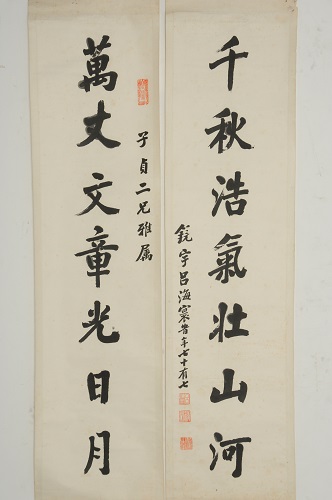 千秋浩氣壯山河
鏡宇呂海寰書年七十有七
子貞二兄雅屬
萬丈文章光日月